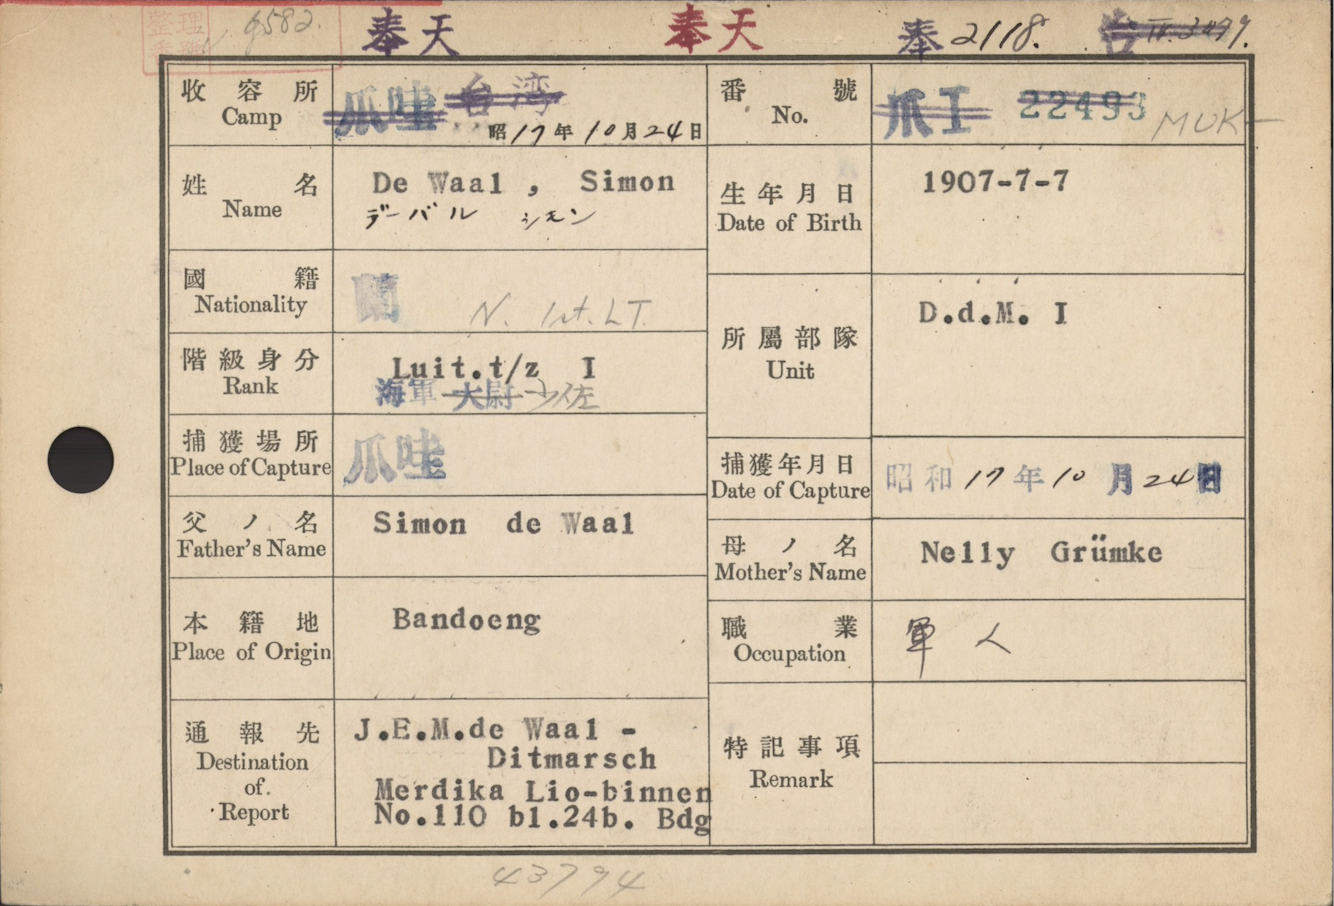 整理番號 9582.
奉天 奉天 奉2118. 台 IV.3499.
收容所 Camp 爪哇 台湾
昭17年10月24日
番號 No. 爪I 22493 MUK
姓名 Name De Waal , Simon
デーバル シモン
生年月日 Date of Birth 1907-7-7
國籍 Nationality 蘭 N. 1st.LT.
階級身分 Rank Luit.t/z I
海軍大尉 少佐
所屬部隊 Unit D.d.M. I
捕獲場所 Place of Capture 爪哇
捕獲年月日 Date of Capture 昭和17年10月24日
父ノ名 Father's Name Simon de Waal
母ノ名 Mother's Name Nelly Grümke
本籍地 Place of Origin Bandoeng
職業 Occupation 軍人
通報先 Destination of. Report
J.E.M.de Waal -
Ditmarsch
Merdika Lio-binnen
No.110 bl.24b. Bdg
特記事項 Remark
43794